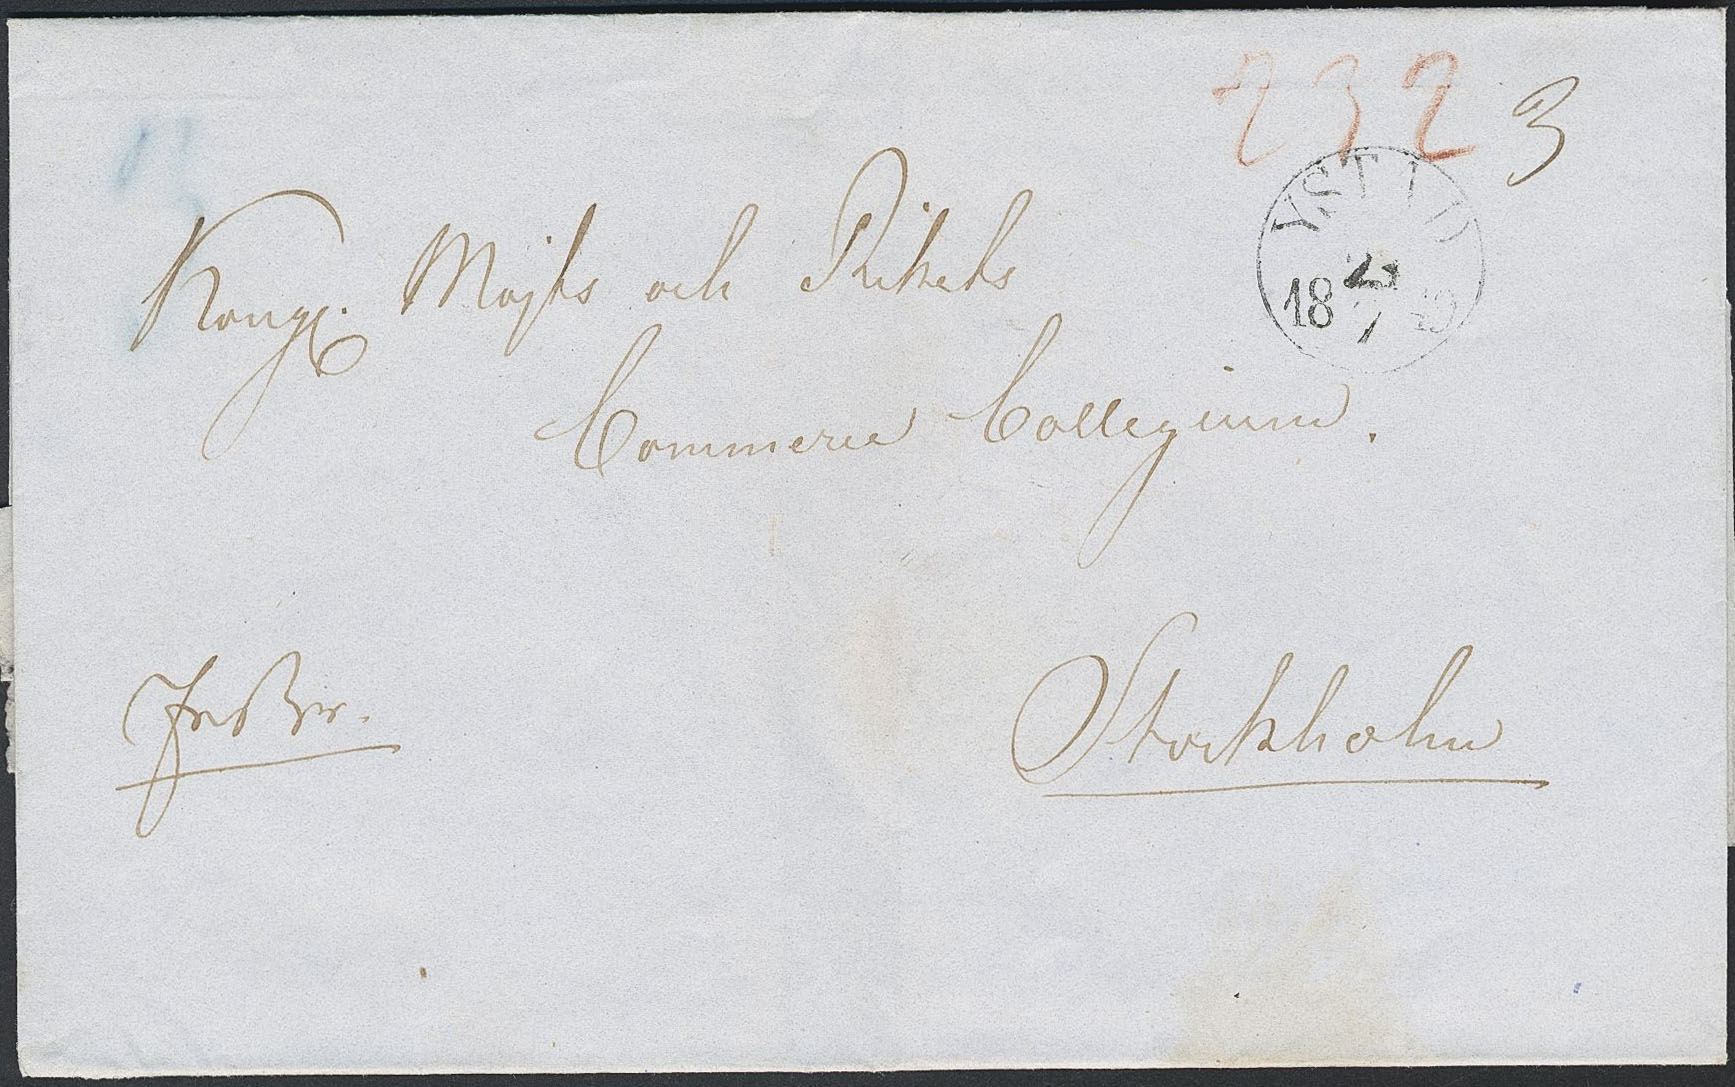 232 3
YSTAD
18
Kongl. Majts och Rikets
Commerce Collegium.
Stockholm